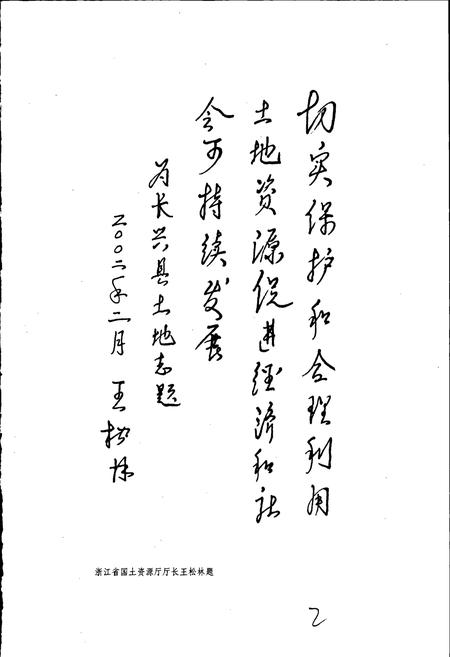 切实保护和合理利用
土地资源促进经济和社
会可持续发展
为长兴县土地志题
二〇〇二年二月 王松林
浙江省国土资源厅厅长王松林题
2